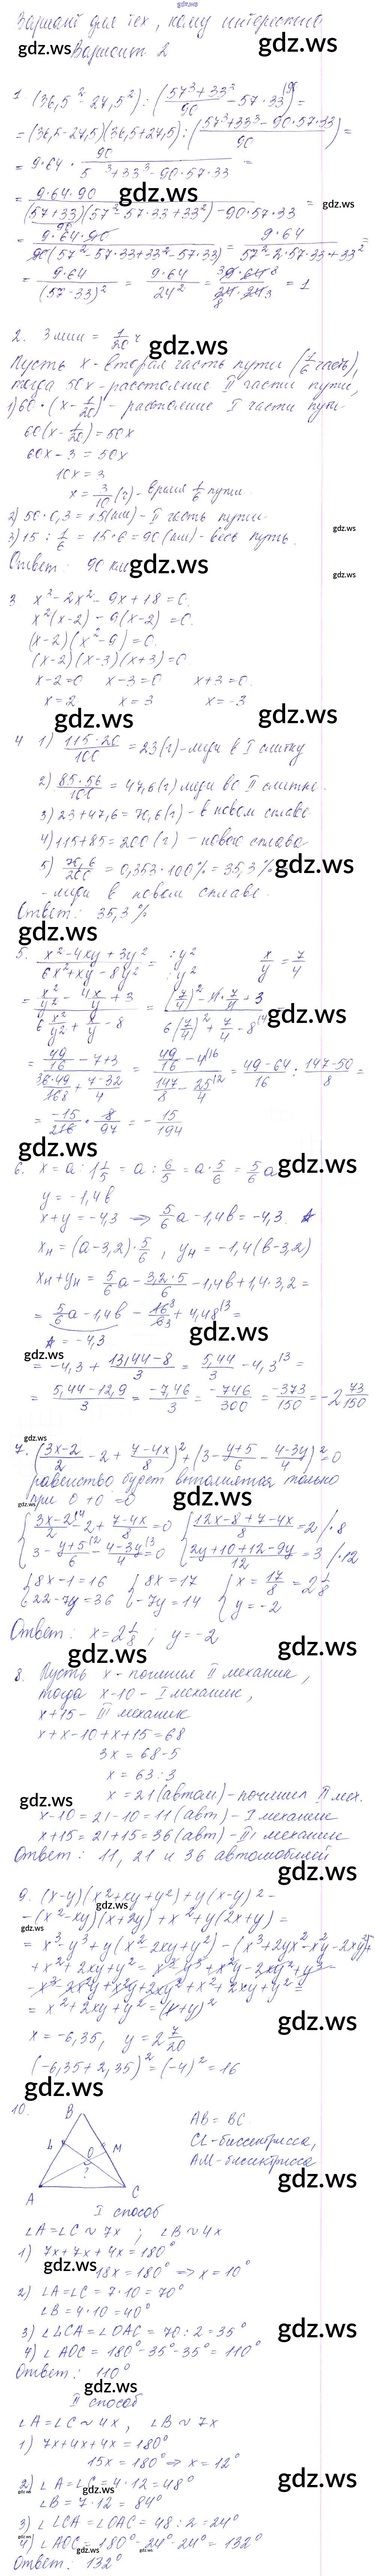 Вариант для тех, кому интересно
Вариант 2
1. (36,5² - 27,5²) : ((57³ + 33³)/90 - 57·33) =
= (36,5-27,5)(36,5+27,5) : ((57³+33³-90·57·33)/90) =
= 9·64 · 90/(5 ³+33³-90·57·33) =
= (9·64·90)/((57+33)(57²-57·33+33²)-90·57·33) =
= (9·64·90)/(90(57²-57·33+33²-57·33)) = (9·64)/(57²-2·57·33+33²) =
= (9·64)/(57-33)² = (9·64)/24² = (9·64)/(24·24) = 1
2. 3 мин = 1/20 ч
Пусть x - вторая часть пути (1/6 часть),
тогда 50x - расстояние II части пути,
1) 60·(x - 1/20) - расстояние I части пути
60(x - 1/20) = 50x
60x - 3 = 50x
10x = 3
x = 3/10 (ч) - время 1/6 пути
2) 50·0,3 = 15 (км) - II часть пути
3) 15 : 1/6 = 15·6 = 90 (км) - весь путь.
Ответ: 90 км
3 x³ - 2x² - 9x + 18 = 0.
x²(x-2) - 9(x-2) = 0.
(x-2)(x²-9) = 0.
(x-2)(x-3)(x+3) = 0.
x-2=0 x-3=0 x+3=0.
x=2 x=3 x=-3
4 1) (115·20)/100 = 23 (г) - меди в I слитку
2) (85·56)/100 = 47,6 (г) меди во II слитке.
3) 23+47,6 = 70,6 (г) - в новом сплаве
4) 115+85 = 200 (г) - нового сплава
5) 70,6/200 = 0,353·100% = 35,3%
- меди в новом сплаве.
Ответ: 35,3%
5. (x²-4xy+3y²)/(6x²+xy-8y²) = :y² :y² x/y = 7/4
= (x²/y² - 4x/y + 3)/(6x²/y² + x/y - 8) = ((7/4)² - 4·7/4 + 3)/(6(7/4)² + 7/4 - 8) =
= (49/16 - 7+3)/(6·49/16 + (7-32)/4) = (49/16 - 4)/(147/8 - 25/4) = (49-64)/16 : (147-50)/8 =
= -15/16 · 8/97 = - 15/194
6. x = a : 1 1/5 = a : 6/5 = a · 5/6 = 5/6 a
y = -1,4b
x+y = -4,3 ⟹ 5/6 a - 1,4b = -4,3.
xн = (a-3,2)·5/6, yн = -1,4(b-3,2)
xн + yн = 5/6 a - (3,2·5)/6 - 1,4b + 1,4·3,2 =
= 5/6 a - 1,4b - 16/6 + 4,48 =
A = -4,3
= -4,3 + (13,44-8)/3 = 5,44/3 - 4,3 =
= (5,44-12,9)/3 = -7,46/3 = -746/300 = -373/150 = -2 73/150
7. ((3x-2)/2 - 2 + (7-4x)/8)² + (3 - (y+5)/6 - (4-3y)/4)² = 0
равенство будет выполняться только
при 0+0=0
{(3x-2)/2 - 2 + (7-4x)/8 = 0 {(12x-8+7-4x)/8 = 2 /·8
3 - (y+5)/6 - (4-3y)/4 = 0 (2y+10+12-9y)/12 = 3 /·12
{8x-1=16 {8x=17 {x = 17/8 = 2 1/8
22-7y=36 -7y=14 y=-2
Ответ: x = 2 1/8; y = -2
8. Пусть x - починил II механик,
тогда x-10 - I механик,
x+15 - III механик
x+x-10+x+15=68
3x = 68-5
x = 63:3
x = 21 (автом) - починил II мех.
x-10 = 21-10 = 11 (авт) - I механик
x+15 = 21+15 = 36 (авт) - III механик
Ответ: 11, 21 и 36 автомобилей
9. (x-y)(x²+xy+y²)+y(x-y)² -
-(x²-xy)(x+3y)+x²+y(2x+y) =
= x³-y³+y(x²-2xy+y²)-(x³+3yx²-x²y-3xy²)+
+x²+2xy+y² = x³-y³+x²y-2xy²+y³-
-x³-3x²y+x²y+3xy²+x²+2xy+y² =
= x²+2xy+y² = (x+y)²
x = -6,35, y = 2 7/20
(-6,35+2,35)² = (-4)² = 16
10. B
L O M
?
A C
AB = BC
CL - биссектрисса,
AM - биссектрисса
I способ
∠A=∠C ~ 7x ; ∠B ~ 4x
1) 7x+7x+4x=180°
18x = 180° ⟹ x = 10°
2) ∠A=∠C = 7·10 = 70°
∠B = 4·10 = 40°
3) ∠LCA = ∠OAC = 70:2 = 35°
4) ∠AOC = 180°-35°-35° = 110°
Ответ: 110°
II способ
∠A=∠C ~ 4x, ∠B ~ 7x
1) 7x+4x+4x=180°
15x = 180° ⟹ x = 12°
2) ∠A=∠C = 4·12 = 48°
∠B = 7·12 = 84°
3) ∠LCA = ∠OAC = 48:2 = 24°
4) ∠AOC = 180°-24°-24° = 132°
Ответ: 132°